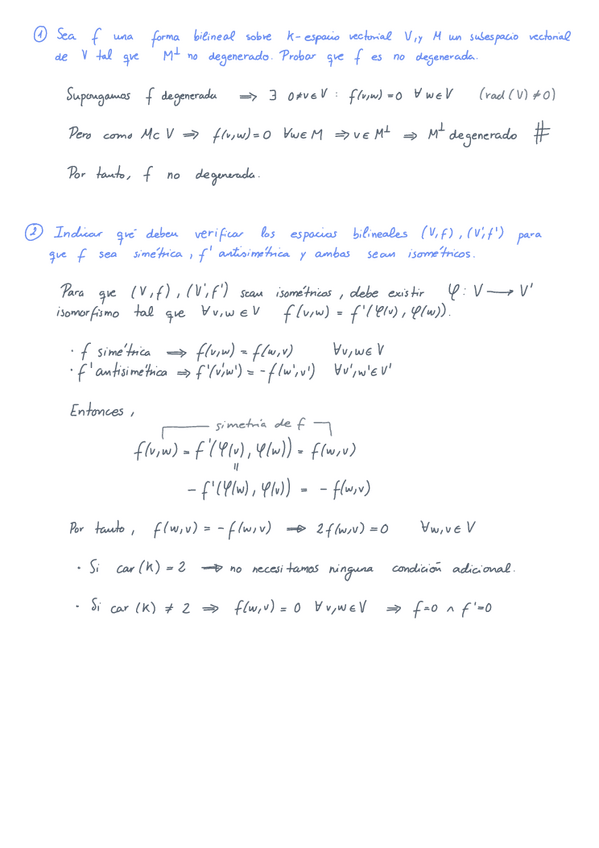 ① Sea f una forma bilineal sobre K-espacio vectorial V, y M un subespacio vectorial
de V tal que M^⊥ no degenerado. Probar que f es no degenerada.
Supongamos f degenerada ⟹ ∃ 0≠v∈V : f(v,w)=0 ∀w∈V (rad(V)≠0)
Pero como M⊂V ⟹ f(v,w)=0 ∀w∈M ⟹ v∈M^⊥ ⟹ M^⊥ degenerado #
Por tanto, f no degenerada.
② Indicar qué deben verificar los espacios bilineales (V,f), (V',f') para
que f sea simétrica, f' antisimétrica y ambas sean isométricos.
Para que (V,f), (V',f') sean isométricos, debe existir φ: V ⟶ V'
isomorfismo tal que ∀v,w∈V f(v,w) = f'(φ(v), φ(w)).
· f simétrica ⟹ f(v,w) = f(w,v) ∀v,w∈V
· f' antisimétrica ⟹ f'(v',w') = -f(w',v') ∀v',w'∈V'
Entonces,
simetría de f
f(v,w) = f'(φ(v), φ(w)) = f(w,v)
=
- f'(φ(w), φ(v)) = - f(w,v)
Por tanto, f(w,v) = -f(w,v) ⟹ 2f(w,v)=0 ∀w,v∈V
· Si car(K) = 2 ⟹ no necesitamos ninguna condición adicional.
· Si car(K) ≠ 2 ⟹ f(w,v) = 0 ∀v,w∈V ⟹ f=0 ∧ f'=0